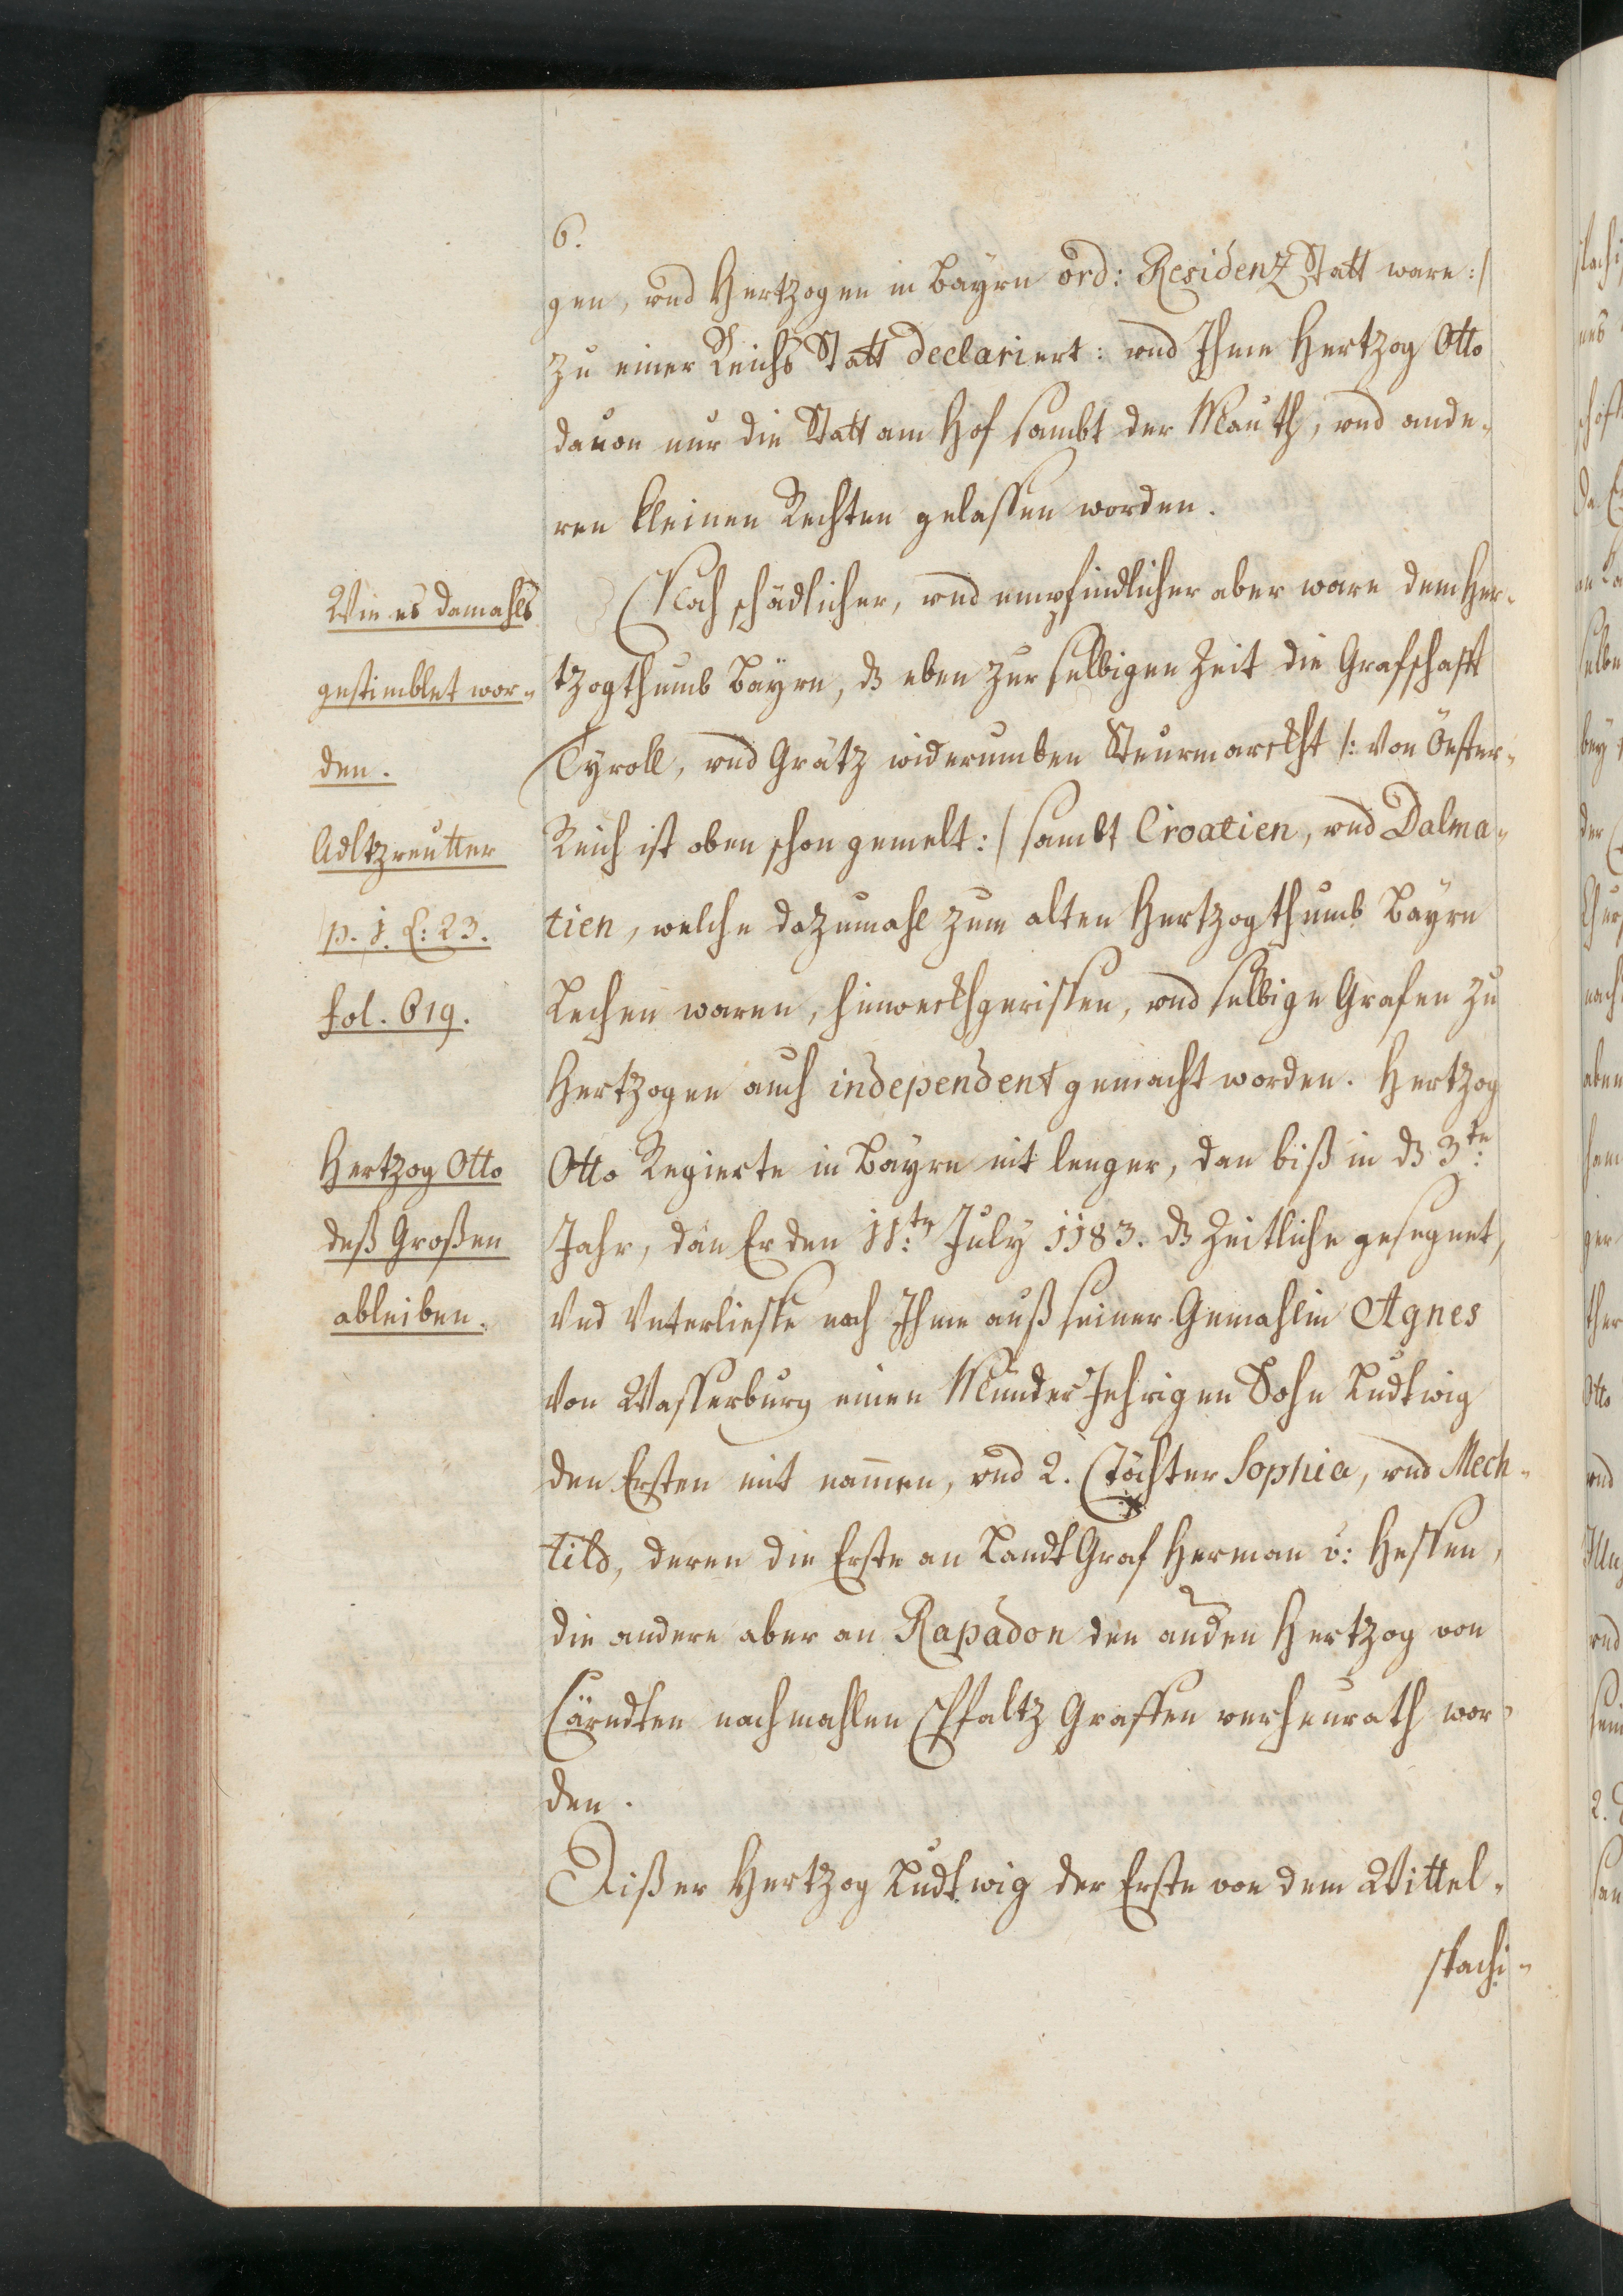 6.
gen, und Hertzogen in Bayrn ord: Residenz Statt ware :/
zu einer Reichs Statt declariert: und Ihme Hertzog Otto
dauon nur die Statt am Hof sambt der Mauth, und ande-
ren kleinen Rechten gelassen worden.
Wie es damahls
gestimblet wor-
den.
Adltzreutter
p. j. l: 23.
fol. 619.
Noch schädlicher, und empfindlicher aber ware dem Her-
tzogthumb Bayrn, dz eben zur selbigen Zeit die Grafschafft
Tyroll, und Grätz widerumben Steurmarckht /: von Öester-
Reich ist oben schon gemelt :/ sambt Croatien, und Dalma-
tien, welche dazumahl zum alten Hertzogthumb Bayrn
Lechen waren, hinweckhgerissen, und selbige Grafen zu
Hertzogen auch independent gemacht worden. Hertzog
Hertzog Otto
deß Großen
ableiben.
Otto Regierte in Bayrn nit lenger, dan biß in dz 3te:
Jahr, dan Er den 11:ten July 1183. dz Zeitliche gesegnet,
Und Unterliesse nach Ihme auß seiner Gemahlin Agnes
von Wasserburg einen Münder Jehrigen Sohn Ludtwig
den Ersten mit nammen, und 2. Töchter Sophia, und Mech-
tild, deren die Erste an Landt Graf Herman v: Hessen,
die andere aber an Rapadon den anden Hertzog von
Cärndten nachmahlen Pfaltz Graffen verheurath wor-
den.
Dißer Hertzog Ludtwig der Erste von dem Wittel-
spachi-